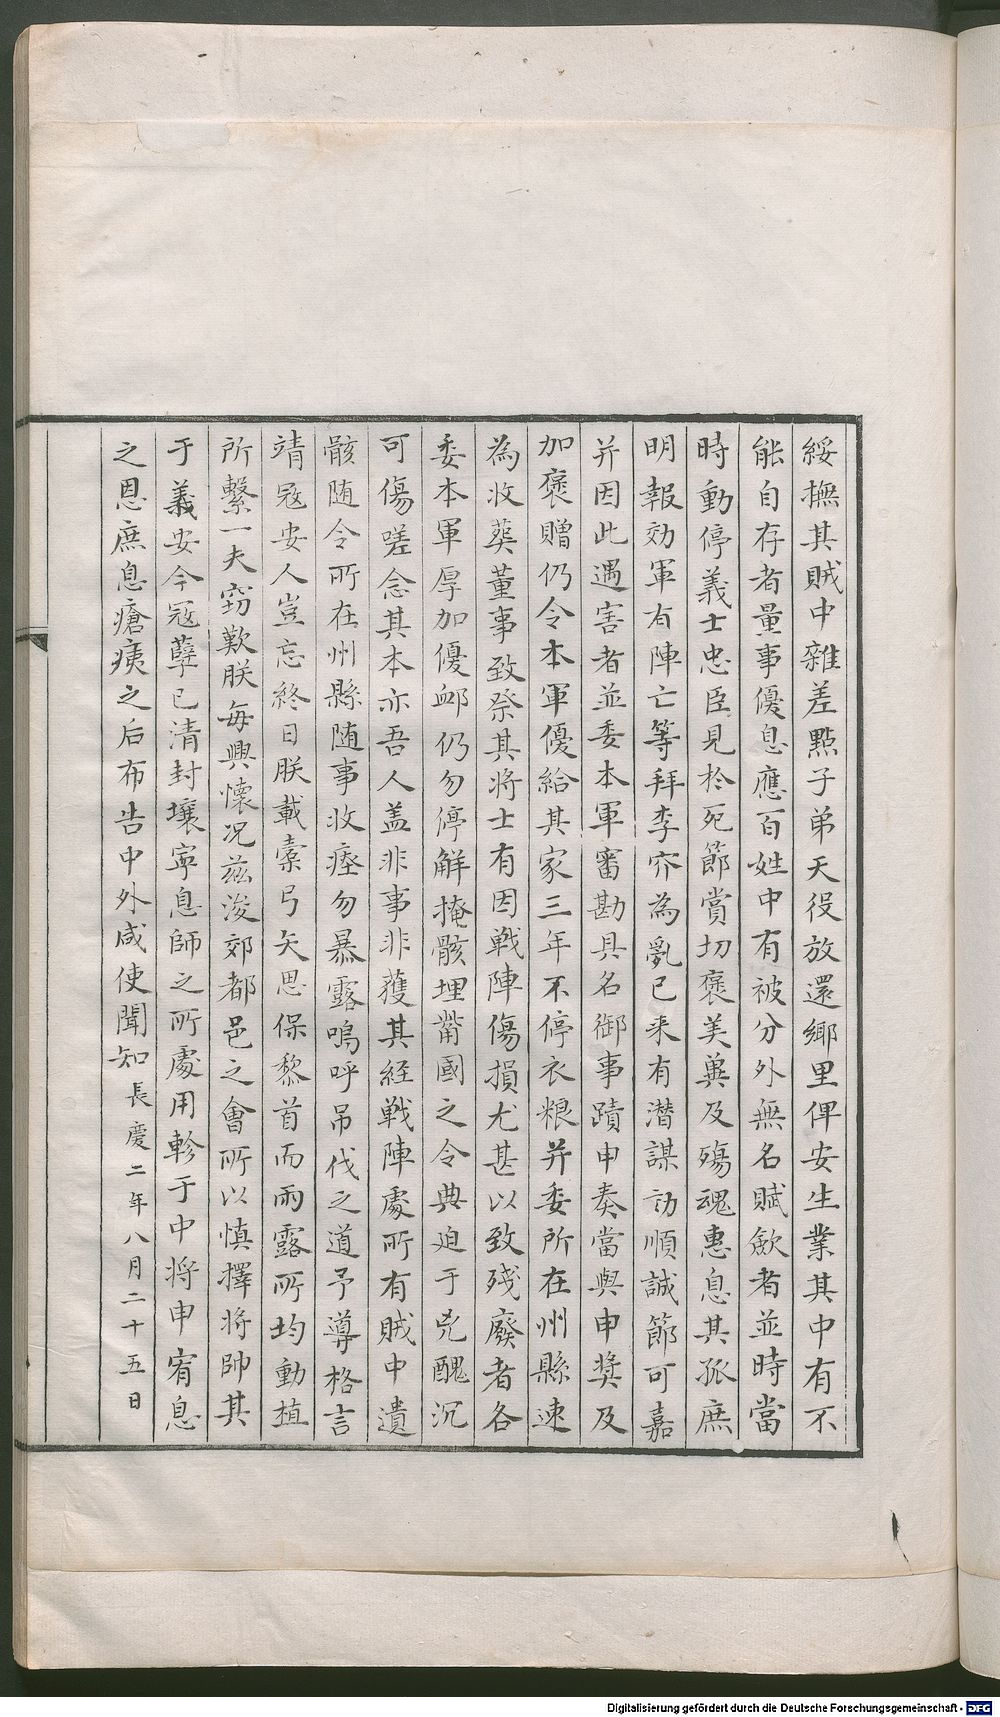 綏撫其賊中雜差點子弟夫役放還鄉里俾安生業其中有不
能自存者量事優息應百姓中有被分外無名賦歛者並時當
時動停義士忠臣見於死節賞切褒美兾及殤魂惠息其孤庶
明報効軍有陣亡等拜李㝏為亂已来有潜謀効順誠節可嘉
并因此遇害者並委本軍審勘具名御事蹟申奏當與申奬及
加褒贈仍令本軍優給其家三年不停衣粮并委所在州縣速
為收葬董事致祭其將士有因戦陣傷損尤甚以致残廢者各
委本軍厚加優卹仍勿停解掩骸埋胔國之令典迫于兇醜沉
可傷嗟念其本亦吾人盖非事非獲其経戦陣處所有賊中遺
骸随令所在州縣随事收瘞勿暴露嗚呼吊伐之道予導格言
靖冦安人豈忘終日朕載櫜弓矢思保黎首而雨露所均動植
所繫一夫窃歎朕每興懷况兹浚郊都邑之會所以慎擇将帥其
于義安今冦孽已清封壤寧息師之所處用軫于中将申宥息
之恩庶息瘡痍之后布告中外咸使聞知長慶二年八月二十五日
Digitalisierung gefördert durch die Deutsche Forschungsgemeinschaft - DFG